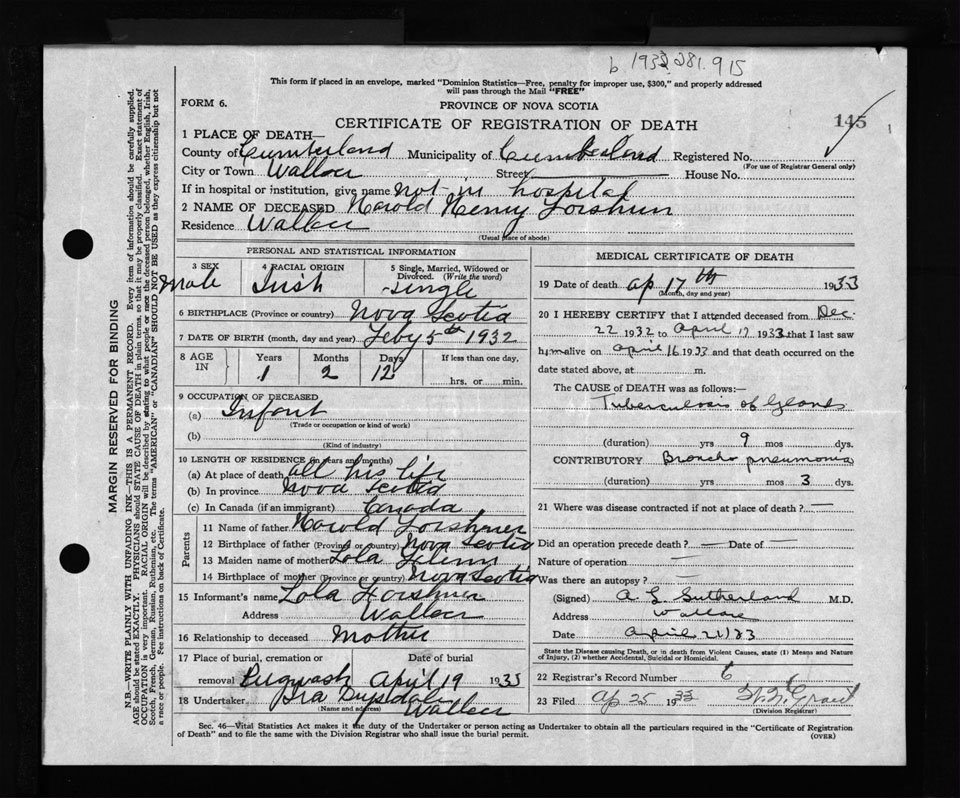 b 1933 281.915
This form if placed in an envelope, marked "Dominion Statistics—Free, penalty for improper use, $300," and properly addressed
will pass through the Mail "FREE"
FORM 6. PROVINCE OF NOVA SCOTIA
CERTIFICATE OF REGISTRATION OF DEATH 145 1
1 PLACE OF DEATH—
County of Cumberland Municipality of Cumberland Registered No.
(For use of Registrar General only)
City or Town Wallace Street House No.
If in hospital or institution, give name not in hospital
2 NAME OF DECEASED Harold Henry
Residence Wallace
(Usual place of abode)
PERSONAL AND STATISTICAL INFORMATION
3 SEX 4 RACIAL ORIGIN 5 Single, Married, Widowed or
Divorced. (Write the word)
Male Irish Single
6 BIRTHPLACE (Province or country) Nova Scotia
7 DATE OF BIRTH (month, day and year) Feby 5th 1932
8 AGE IN Years Months Days If less than one day,
1 2 12 hrs. or min.
9 OCCUPATION OF DECEASED
(a) Infant
(Trade or occupation or kind of work)
(b)
(Kind of industry)
10 LENGTH OF RESIDENCE (in years and months)
(a) At place of death all his life
(b) In province Nova Scotia
(c) In Canada (if an immigrant) Canada
Parents
11 Name of father Harold
12 Birthplace of father (Province or country) Nova Scotia
13 Maiden name of mother Lola
14 Birthplace of mother (Province or country) Nova Scotia
15 Informant's name Lola
Address Wallace
16 Relationship to deceased Mother
17 Place of burial, cremation or Date of burial
removal Pugwash April 19 1933
18 Undertaker Ira Drysdale
(Name and address) Wallace
MEDICAL CERTIFICATE OF DEATH
19 Date of death Ap 17th 1933
(Month, day and year)
20 I HEREBY CERTIFY that I attended deceased from Dec.
22 1932 to April 17 1933 that I last saw
him alive on April 16 1933 and that death occurred on the
date stated above, at m.
The CAUSE of DEATH was as follows:—
Tuberculosis of Glands
(duration) yrs 9 mos dys.
CONTRIBUTORY Broncho pneumonia
(duration) yrs mos 3 dys.
21 Where was disease contracted if not at place of death? —
Did an operation precede death? — Date of —
Nature of operation —
Was there an autopsy? —
(Signed) A. L. Sutherland M.D.
Address Wallace
Date April 21/33
State the Disease causing Death, or in death from Violent Causes, state (1) Means and Nature
of Injury, (2) whether Accidental, Suicidal or Homicidal.
22 Registrar's Record Number 6
23 Filed Ap 25 1933
(Division Registrar)
Sec. 46—Vital Statistics Act makes it the duty of the Undertaker or person acting as Undertaker to obtain all the particulars required in the "Certificate of Registration
of Death" and to file the same with the Division Registrar who shall issue the burial permit. (OVER)
MARGIN RESERVED FOR BINDING
N.B.—WRITE PLAINLY WITH UNFADING INK—THIS IS A PERMANENT RECORD. Every item of information should be carefully supplied.
AGE should be stated EXACTLY. PHYSICIANS should STATE CAUSE OF DEATH in plain terms, so that it may be properly classified. Exact statement of
OCCUPATION is very important. RACIAL ORIGIN will be described by stating to what people or race the deceased person belonged, whether English, Irish,
Scotch, French, German, Russian, Ruthenian, etc. The terms "AMERICAN" or "CANADIAN" SHOULD NOT BE USED as they express citizenship but not
a race or people. See instructions on back of Certificate.